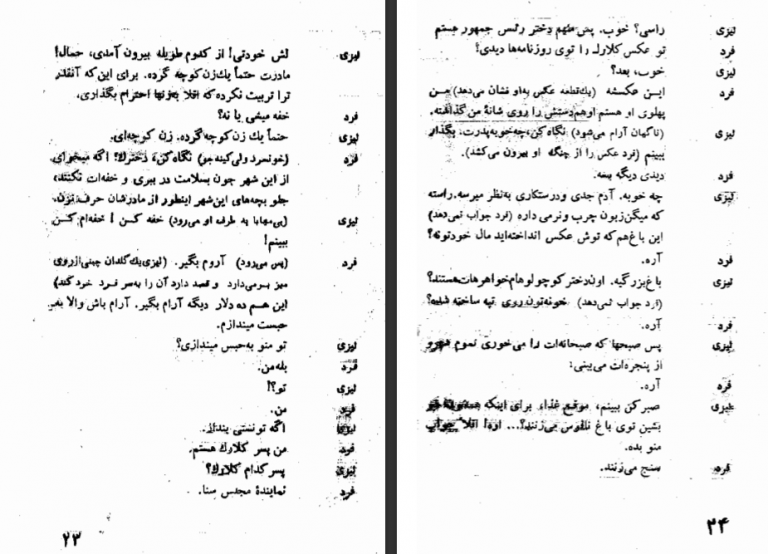 لیزی لش خودتی! از کدوم طویله بیرون آمدی، حمال!
مادرت حتماً یك زن کوچه گرده. برای این که آنقدر
ترا تربیت نکرده که اقلا به زنها احترام بگذاری.
فرد خفه میشی یا نه؟
لیزی حتماً یك زن کوچه گرده. زن کوچه‌ای.
فرد (خونسرد ولی کینه جو) نگاه کن، دخترك؟ اگه میخوای
از این شهر جون بسلامت در ببری و خفه‌ات نکنند،
جلو بچه‌های این شهر اینطور از مادرشان حرف نزن.
لیزی (بی‌مهابا به طرف او می‌رود) خفه کن! خفه‌ام کن
ببینم!
فرد (پس می‌رود) آروم بگیر. (لیزی یك گلدان چینی از روی
میز برمی‌دارد و قصد دارد آن را به سر فرد خرد کند)
این هم ده دلار دیگه آرام بگیر. آرام باش والا به
حبست میندازم.
لیزی تو منو به حبس میندازی؟
فرد بله من.
لیزی تو؟!
فرد من.
لیزی اگه تونستی بنداز.
فرد من پسر کلارك هستم.
لیزی پسر کدام کلارك؟
فرد نمایندهٔ مجلس سنا.
۲۳
لیزی راسی؟ خوب. پس منهم دختر رئیس جمهور هستم
فرد تو عکس کلارك را توی روزنامه‌ها دیدی؟
لیزی خوب، بعد؟
فرد این عکسشه (یك قطعه عکس به او نشان می‌دهد) من
پهلوی او هستم او هم دستش را روی شانهٔ من گذاشته.
لیزی (ناگهان آرام می‌شود) نگاه کن، چه خوبه پدرت، بگذار
ببینم (فرد عکس را از چنگ او بیرون می‌کشد).
فرد دیدی دیگه بسه.
لیزی چه خوبه. آدم جدی و درستکاری به‌نظر میرسه. راسته
که میگن زبون چرب و نرمی داره (فرد جواب نمی‌دهد)
این باغ هم که توش عکس انداخته‌اید مال خودتونه؟
فرد آره.
لیزی باغ بزرگیه. اون دختر کوچولو هام خواهرهات هستند؟
(فرد جواب نمی‌دهد) خونه‌تون روی تپه ساخته شده؟
فرد آره.
لیزی پس صبحها که صبحانه‌ات را می‌خوری تموم شهرو
از پنجره‌ات می‌بینی:
فرد آره.
لیزی صبر کن ببینم، موقع غذا، برای اینکه
بشین توی باغ ناقوس می‌زنند؟... اوه! اقلا جواب
منو بده.
فرد سنج می‌زنند.
۲۴